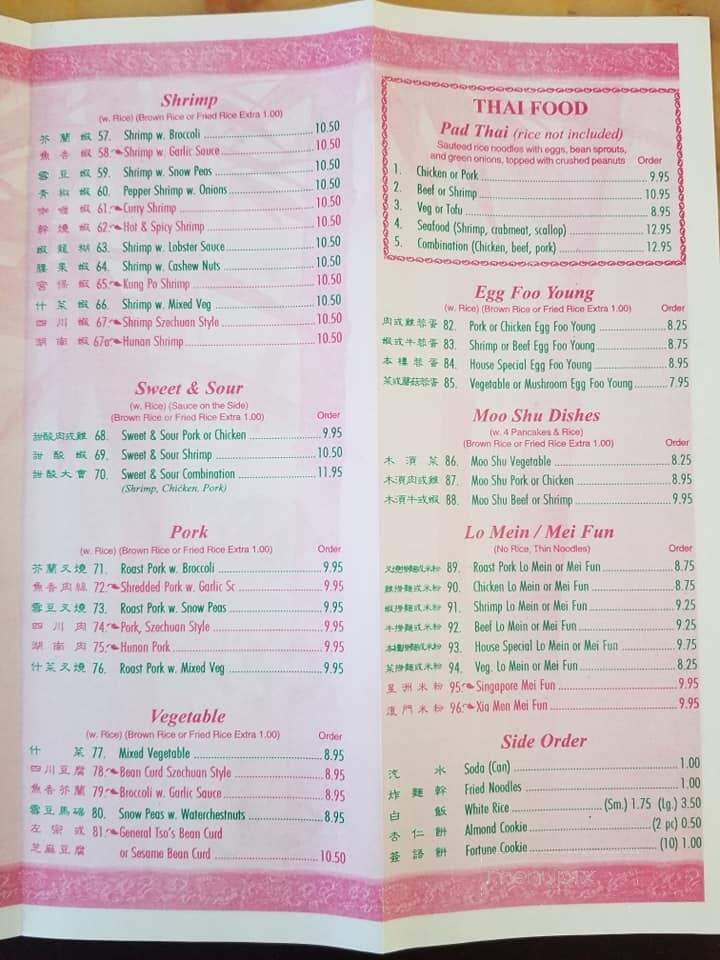 Shrimp
(w. Rice) (Brown Rice or Fried Rice Extra 1.00)
芥蘭蝦 57. Shrimp w. Broccoli 10.50
魚香蝦 58. Shrimp w. Garlic Sauce 10.50
雪豆蝦 59. Shrimp w. Snow Peas 10.50
青椒蝦 60. Pepper Shrimp w. Onions 10.50
咖喱蝦 61. Curry Shrimp 10.50
幹燒蝦 62. Hot & Spicy Shrimp 10.50
蝦龍糊 63. Shrimp w. Lobster Sauce 10.50
腰果蝦 64. Shrimp w. Cashew Nuts 10.50
宮保蝦 65. Kung Po Shrimp 10.50
什菜蝦 66. Shrimp w. Mixed Veg 10.50
四川蝦 67. Shrimp Szechuan Style 10.50
湖南蝦 67a. Hunan Shrimp 10.50
Sweet & Sour
(w. Rice) (Sauce on the Side)
(Brown Rice or Fried Rice Extra 1.00) Order
甜酸肉或雞 68. Sweet & Sour Pork or Chicken 9.95
甜酸蝦 69. Sweet & Sour Shrimp 10.50
甜酸大會 70. Sweet & Sour Combination 11.95
(Shrimp, Chicken, Pork)
Pork
(w. Rice) (Brown Rice or Fried Rice Extra 1.00) Order
芥蘭叉燒 71. Roast Pork w. Broccoli 9.95
魚香肉絲 72. Shredded Pork w. Garlic Sc 9.95
雪豆叉燒 73. Roast Pork w. Snow Peas 9.95
四川肉 74. Pork, Szechuan Style 9.95
湖南肉 75. Hunan Pork 9.95
什菜叉燒 76. Roast Pork w. Mixed Veg 9.95
Vegetable
(w. Rice) (Brown Rice or Fried Rice Extra 1.00) Order
什菜 77. Mixed Vegetable 8.95
四川豆腐 78. Bean Curd Szechuan Style 8.95
魚香芥蘭 79. Broccoli w. Garlic Sauce 8.95
雪豆馬碲 80. Snow Peas w. Waterchestnuts 8.95
左宗或 81. General Tso's Bean Curd
芝麻豆腐 or Sesame Bean Curd 10.50
THAI FOOD
Pad Thai (rice not included)
Sauteed rice noodles with eggs, bean sprouts,
and green onions, topped with crushed peanuts Order
1. Chicken or Pork 9.95
2. Beef or Shrimp 10.95
3. Veg or Tofu 8.95
4. Seafood (Shrimp, crabmeat, scallop) 12.95
5. Combination (Chicken, beef, pork) 12.95
Egg Foo Young
(w. Rice) (Brown Rice or Fried Rice Extra 1.00) Order
肉或雞蓉蛋 82. Pork or Chicken Egg Foo Young 8.25
蝦或牛蓉蛋 83. Shrimp or Beef Egg Foo Young 8.75
本樓蓉蛋 84. House Special Egg Foo Young 8.95
菜或蘑菇蓉蛋 85. Vegetable or Mushroom Egg Foo Young 7.95
Moo Shu Dishes
(w. 4 Pancakes & Rice)
(Brown Rice or Fried Rice Extra 1.00) Order
木須菜 86. Moo Shu Vegetable 8.25
木須肉或雞 87. Moo Shu Pork or Chicken 8.95
木須牛或蝦 88. Moo Shu Beef or Shrimp 9.95
Lo Mein / Mei Fun
(No Rice, Thin Noodles) Order
叉燒撈麵或米粉 89. Roast Pork Lo Mein or Mei Fun 8.75
雞撈麵或米粉 90. Chicken Lo Mein or Mei Fun 8.75
蝦撈麵或米粉 91. Shrimp Lo Mein or Mei Fun 9.25
牛撈麵或米粉 92. Beef Lo Mein or Mei Fun 9.25
本樓撈麵或米粉 93. House Special Lo Mein or Mei Fun 9.75
菜撈麵或米粉 94. Veg. Lo Mein or Mei Fun 8.25
星洲米粉 95. Singapore Mei Fun 9.95
廈門米粉 96. Xia Men Mei Fun 9.95
Side Order
汽水 Soda (Can) 1.00
炸麵幹 Fried Noodles 1.00
白飯 White Rice (Sm.) 1.75 (Lg.) 3.50
杏仁餅 Almond Cookie (2 pc) 0.50
簽語餅 Fortune Cookie (10) 1.00
menupix